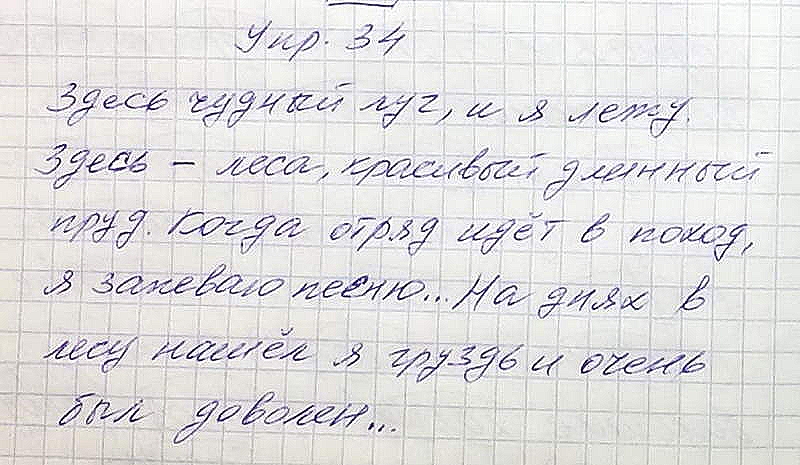 Упр. 34
Здесь чудный луг, и я лежу.
Здесь – леса, красивый длинный
пруд. Когда отряд идёт в поход,
я запеваю песню... На днях в
лесу нашёл я груздь и очень
был доволен...